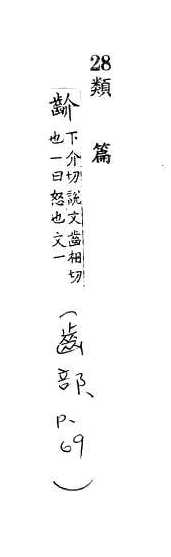 28類篇
齘下介切說文齒相切
也一曰怒也文一
(齒部、p.69)